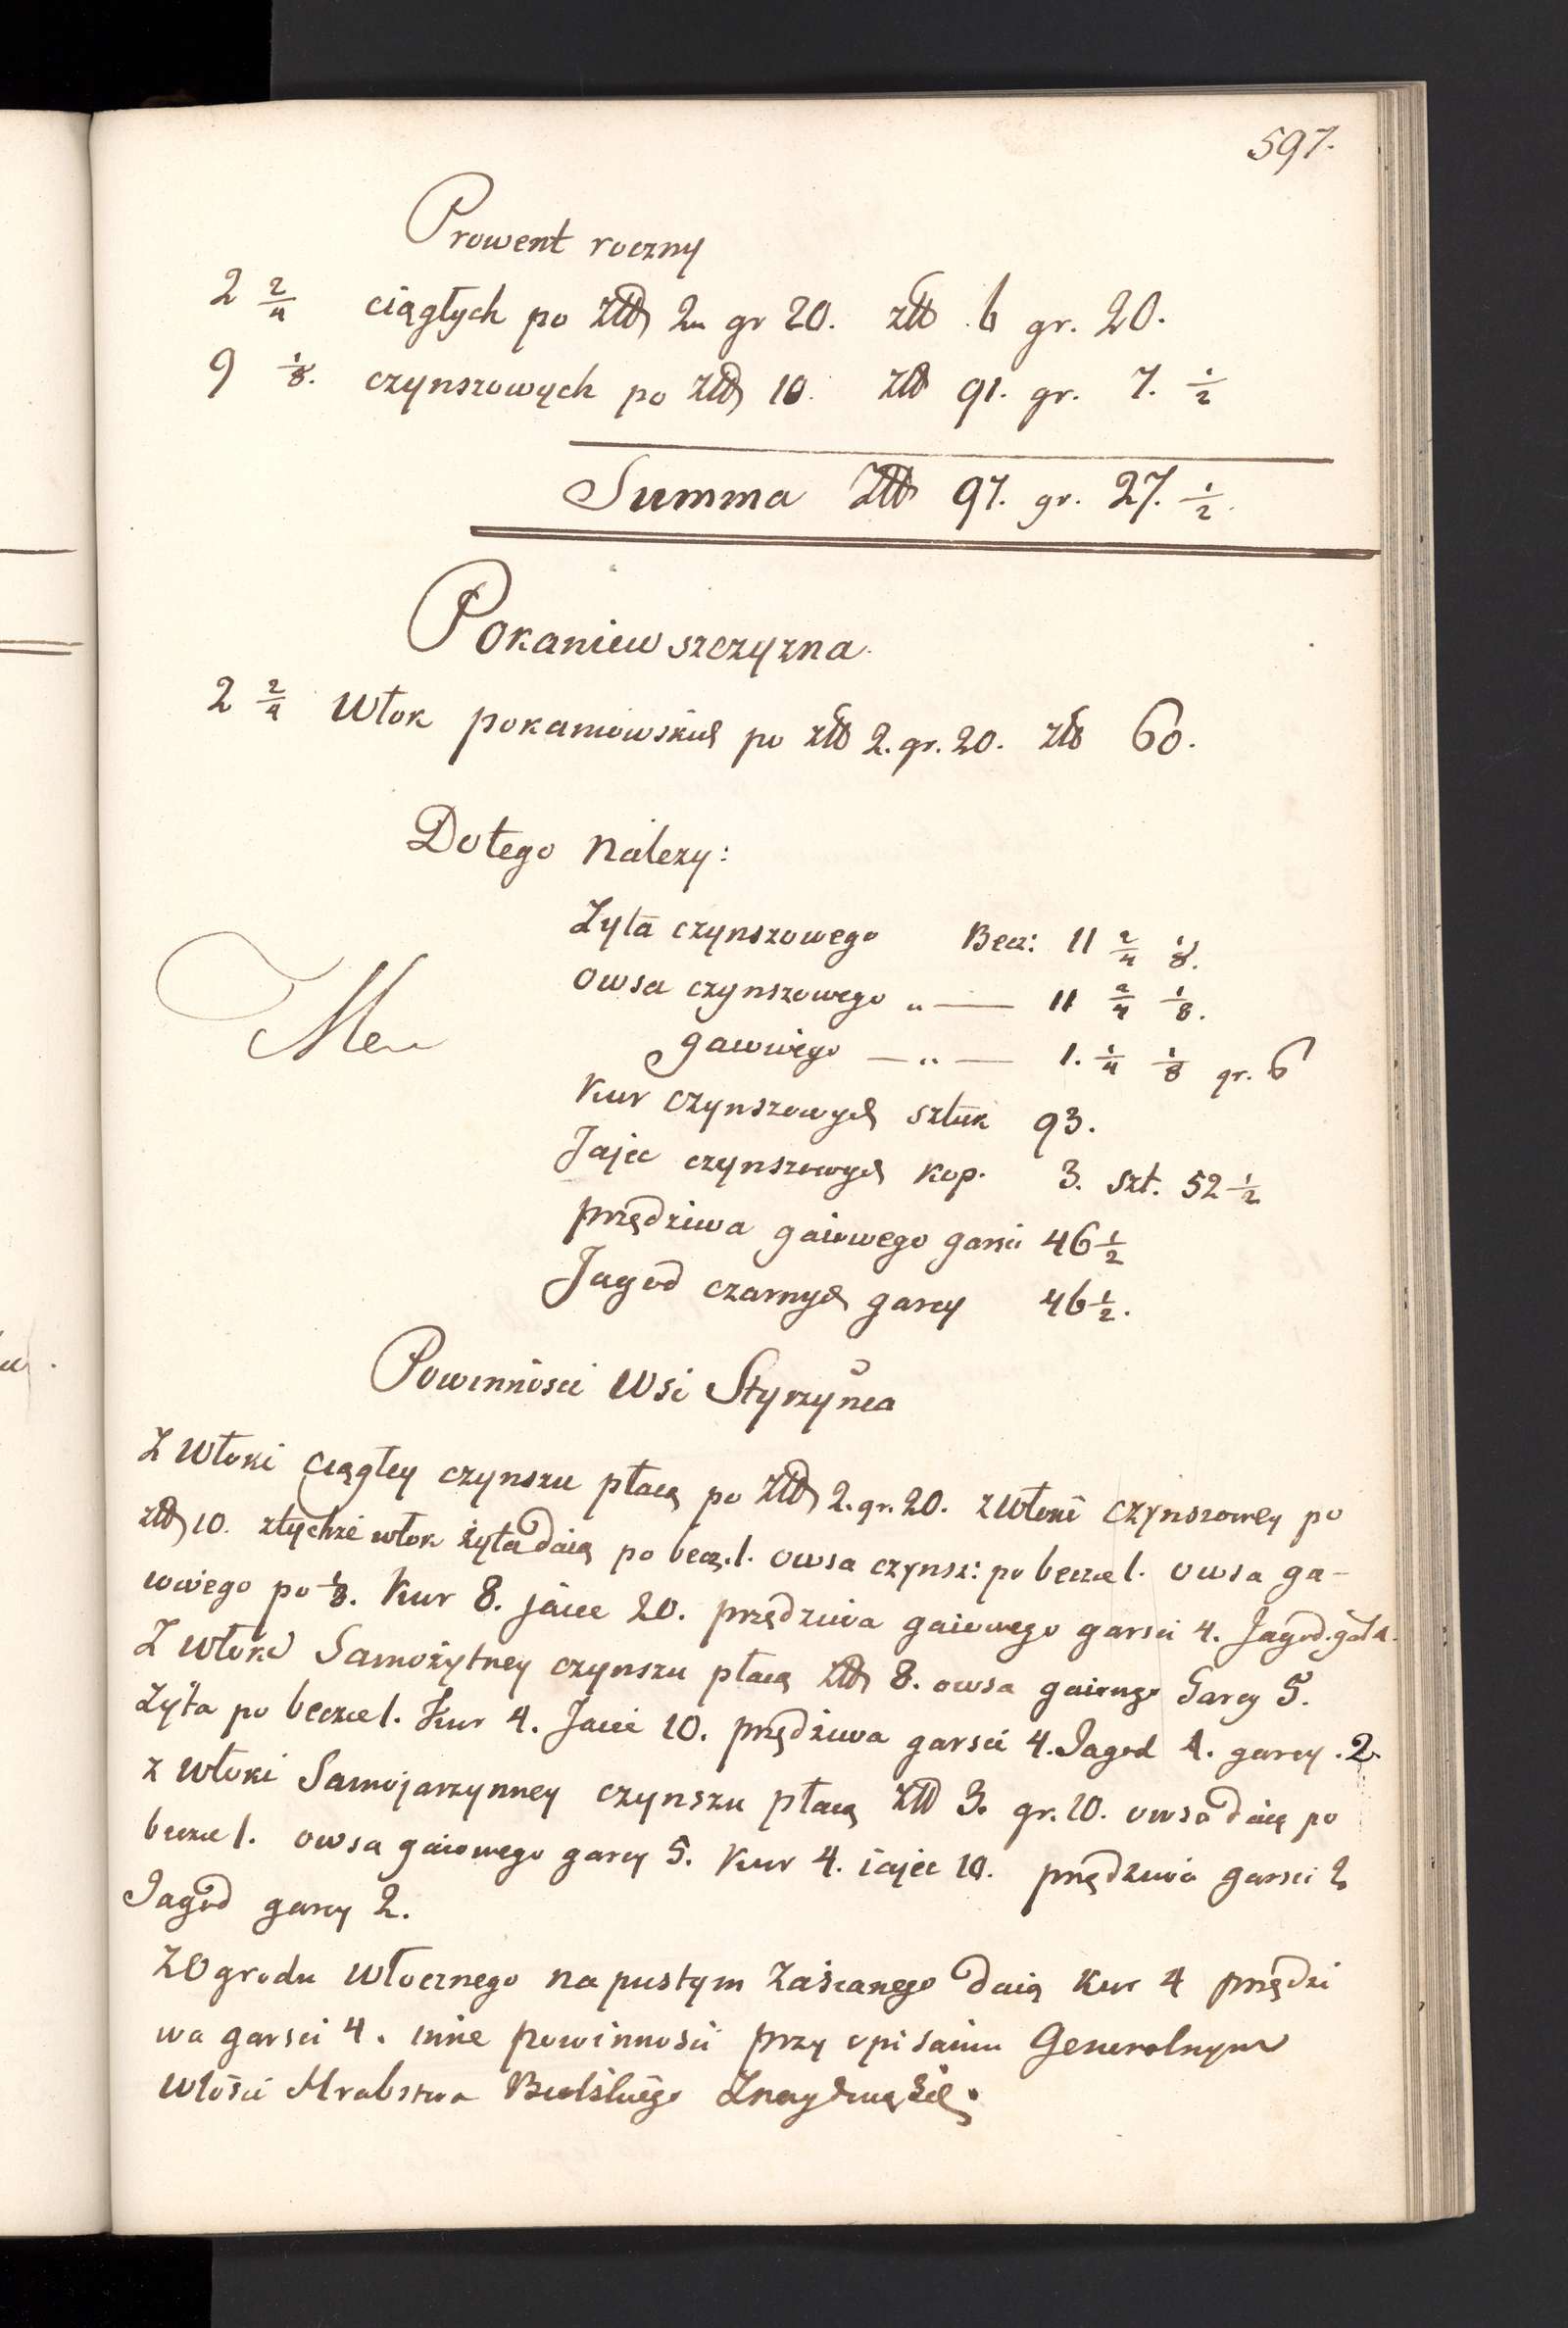 597.
Prowent roczny
2 2/4 ciągłych po złł 2 gr 20. złł 6 gr. 20.
9 1/8. czynszowych po złł 10. złł 91. gr. 7. 1/2
Summa Złł 97. gr. 27. 1/2.
Pokaniewszczyzna.
2 2/4 Włok pokaniowskich po złł 2. gr. 20. złł 60.
Dotego należy:
Żyta czynszowego Becz: 11 2/4 1/8.
owsa czynszowego „ — 11 2/4 1/8.
gaiowego — „ — 1. 1/4 1/8 gr. 6
Kur czynszowych sztuk 93.
Jajec czynszowych kop. 3. szt. 52 1/2
przędziwa gaiowego garsci 46 1/2
Jagod czarnych garcy 46 1/2.
Powinnosci wsi Styrzynca
Z włoki ciągłey czynszu płacą po złł 2. gr. 20. z włoki czynszowey po
złł 10. z tychże włok żyta daią po becz. 1. owsa czynsz: po beczce 1. owsa ga-
iowego po 1/8. Kur 8. jaiec 20. przędziwa gaiowego garsci 4. Jagod. ga: 4.
Z włoki Samożytney czynszu płacą złł 8. owsa gaiowego Garcy 5.
żyta po beczce 1. Kur 4. Jaiec 10. przędziwa garsci 4. Jagod garcy . 2.
z włoki Samojarzynney czynszu płacą złł 3. gr. 10. owsa daią po
beczce 1. owsa gaiowego garcy 5. Kur 4. iajec 10. przędziwa garsci 2
Jagod garcy 2.
Z Ogrodu włocznego na pustym daią Kur 4 przędzi
wa garsci 4. inne powinnosci przy opisaniu Generalnym
włosci Hrabstwa Bielskiego Znayduią się.